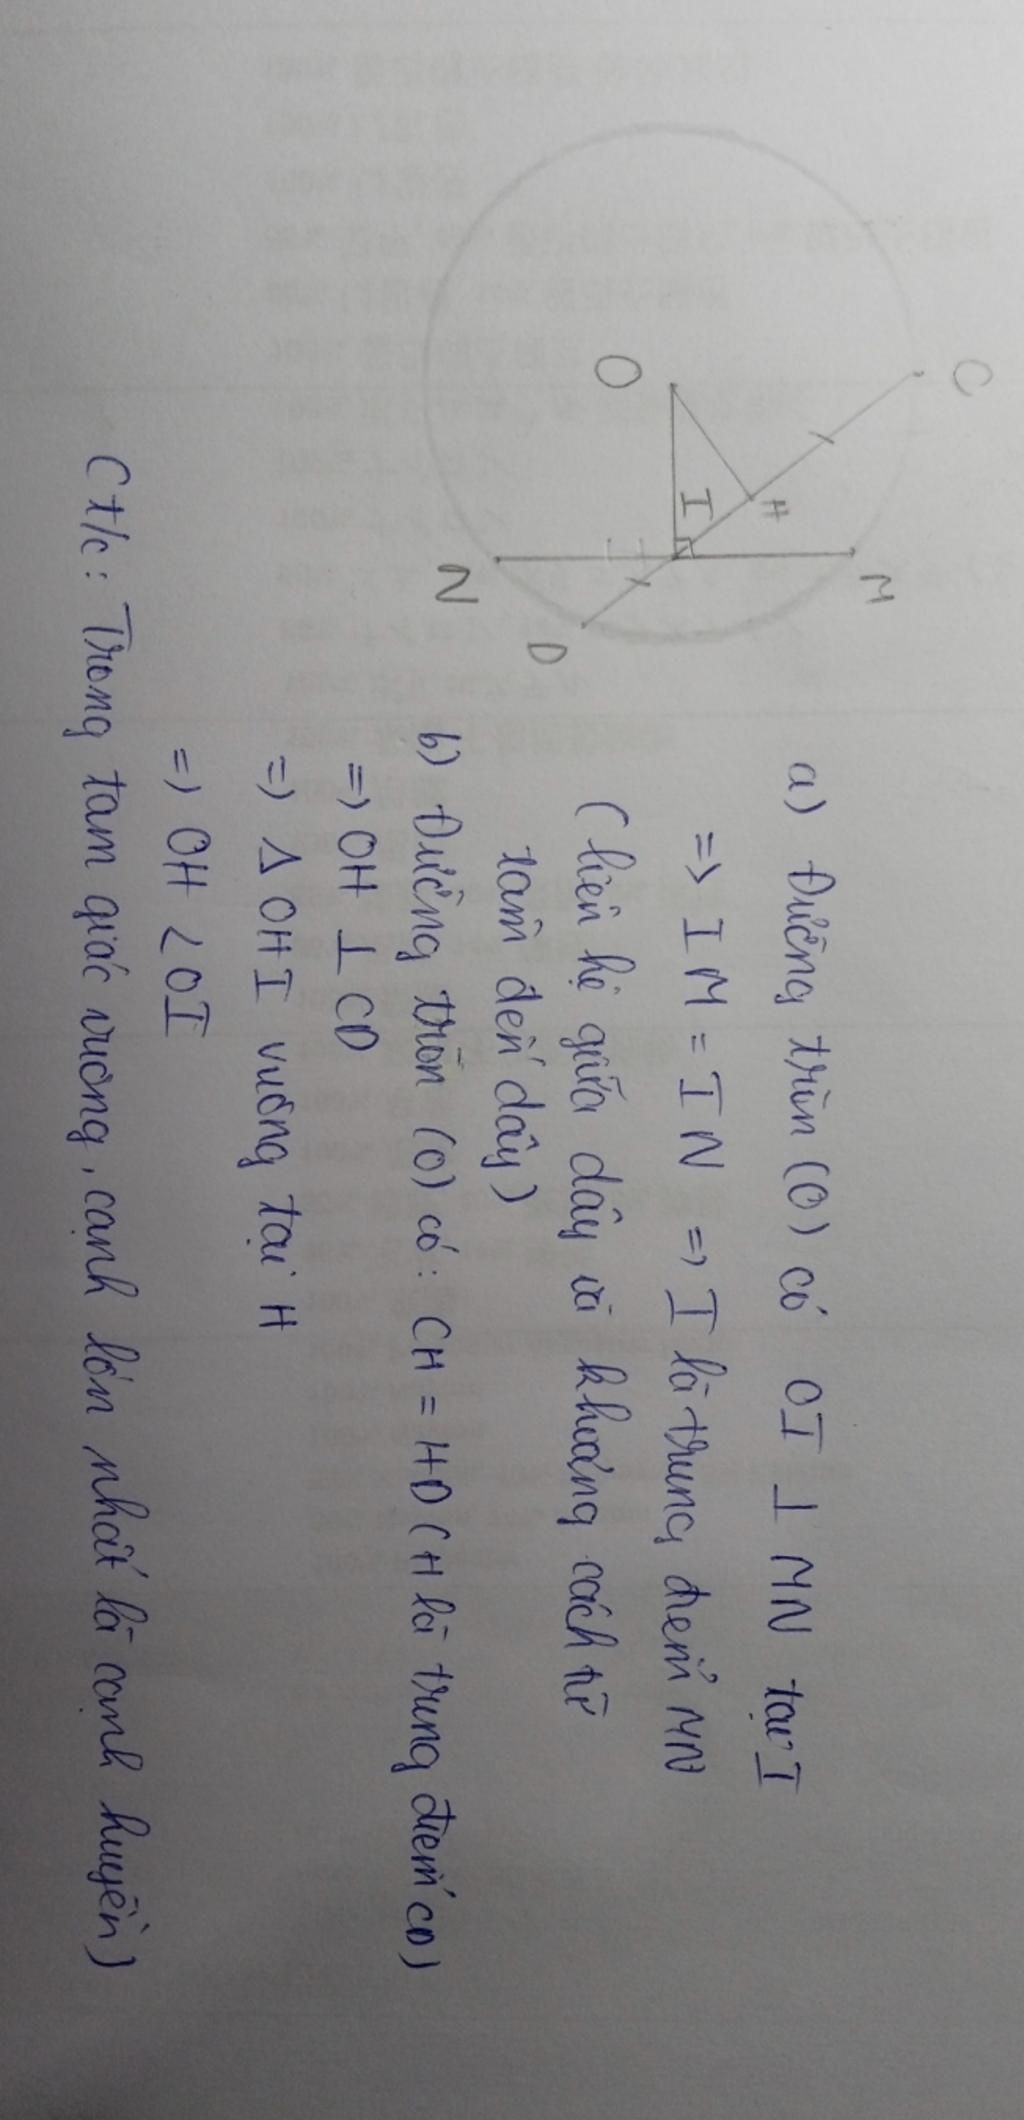 C
H
M
O
I
N
D
a) Đường tròn (O) có OI ⊥ MN tại I
=> IM = IN => I là trung điểm MN
(liên hệ giữa dây và khoảng cách từ
tâm đến dây)
b) Đường tròn (O) có: CH = HD (H là trung điểm CD)
=> OH ⊥ CD
=> Δ OHI vuông tại H
=> OH < OI
(t/c: Trong tam giác vuông, cạnh lớn nhất là cạnh huyền)